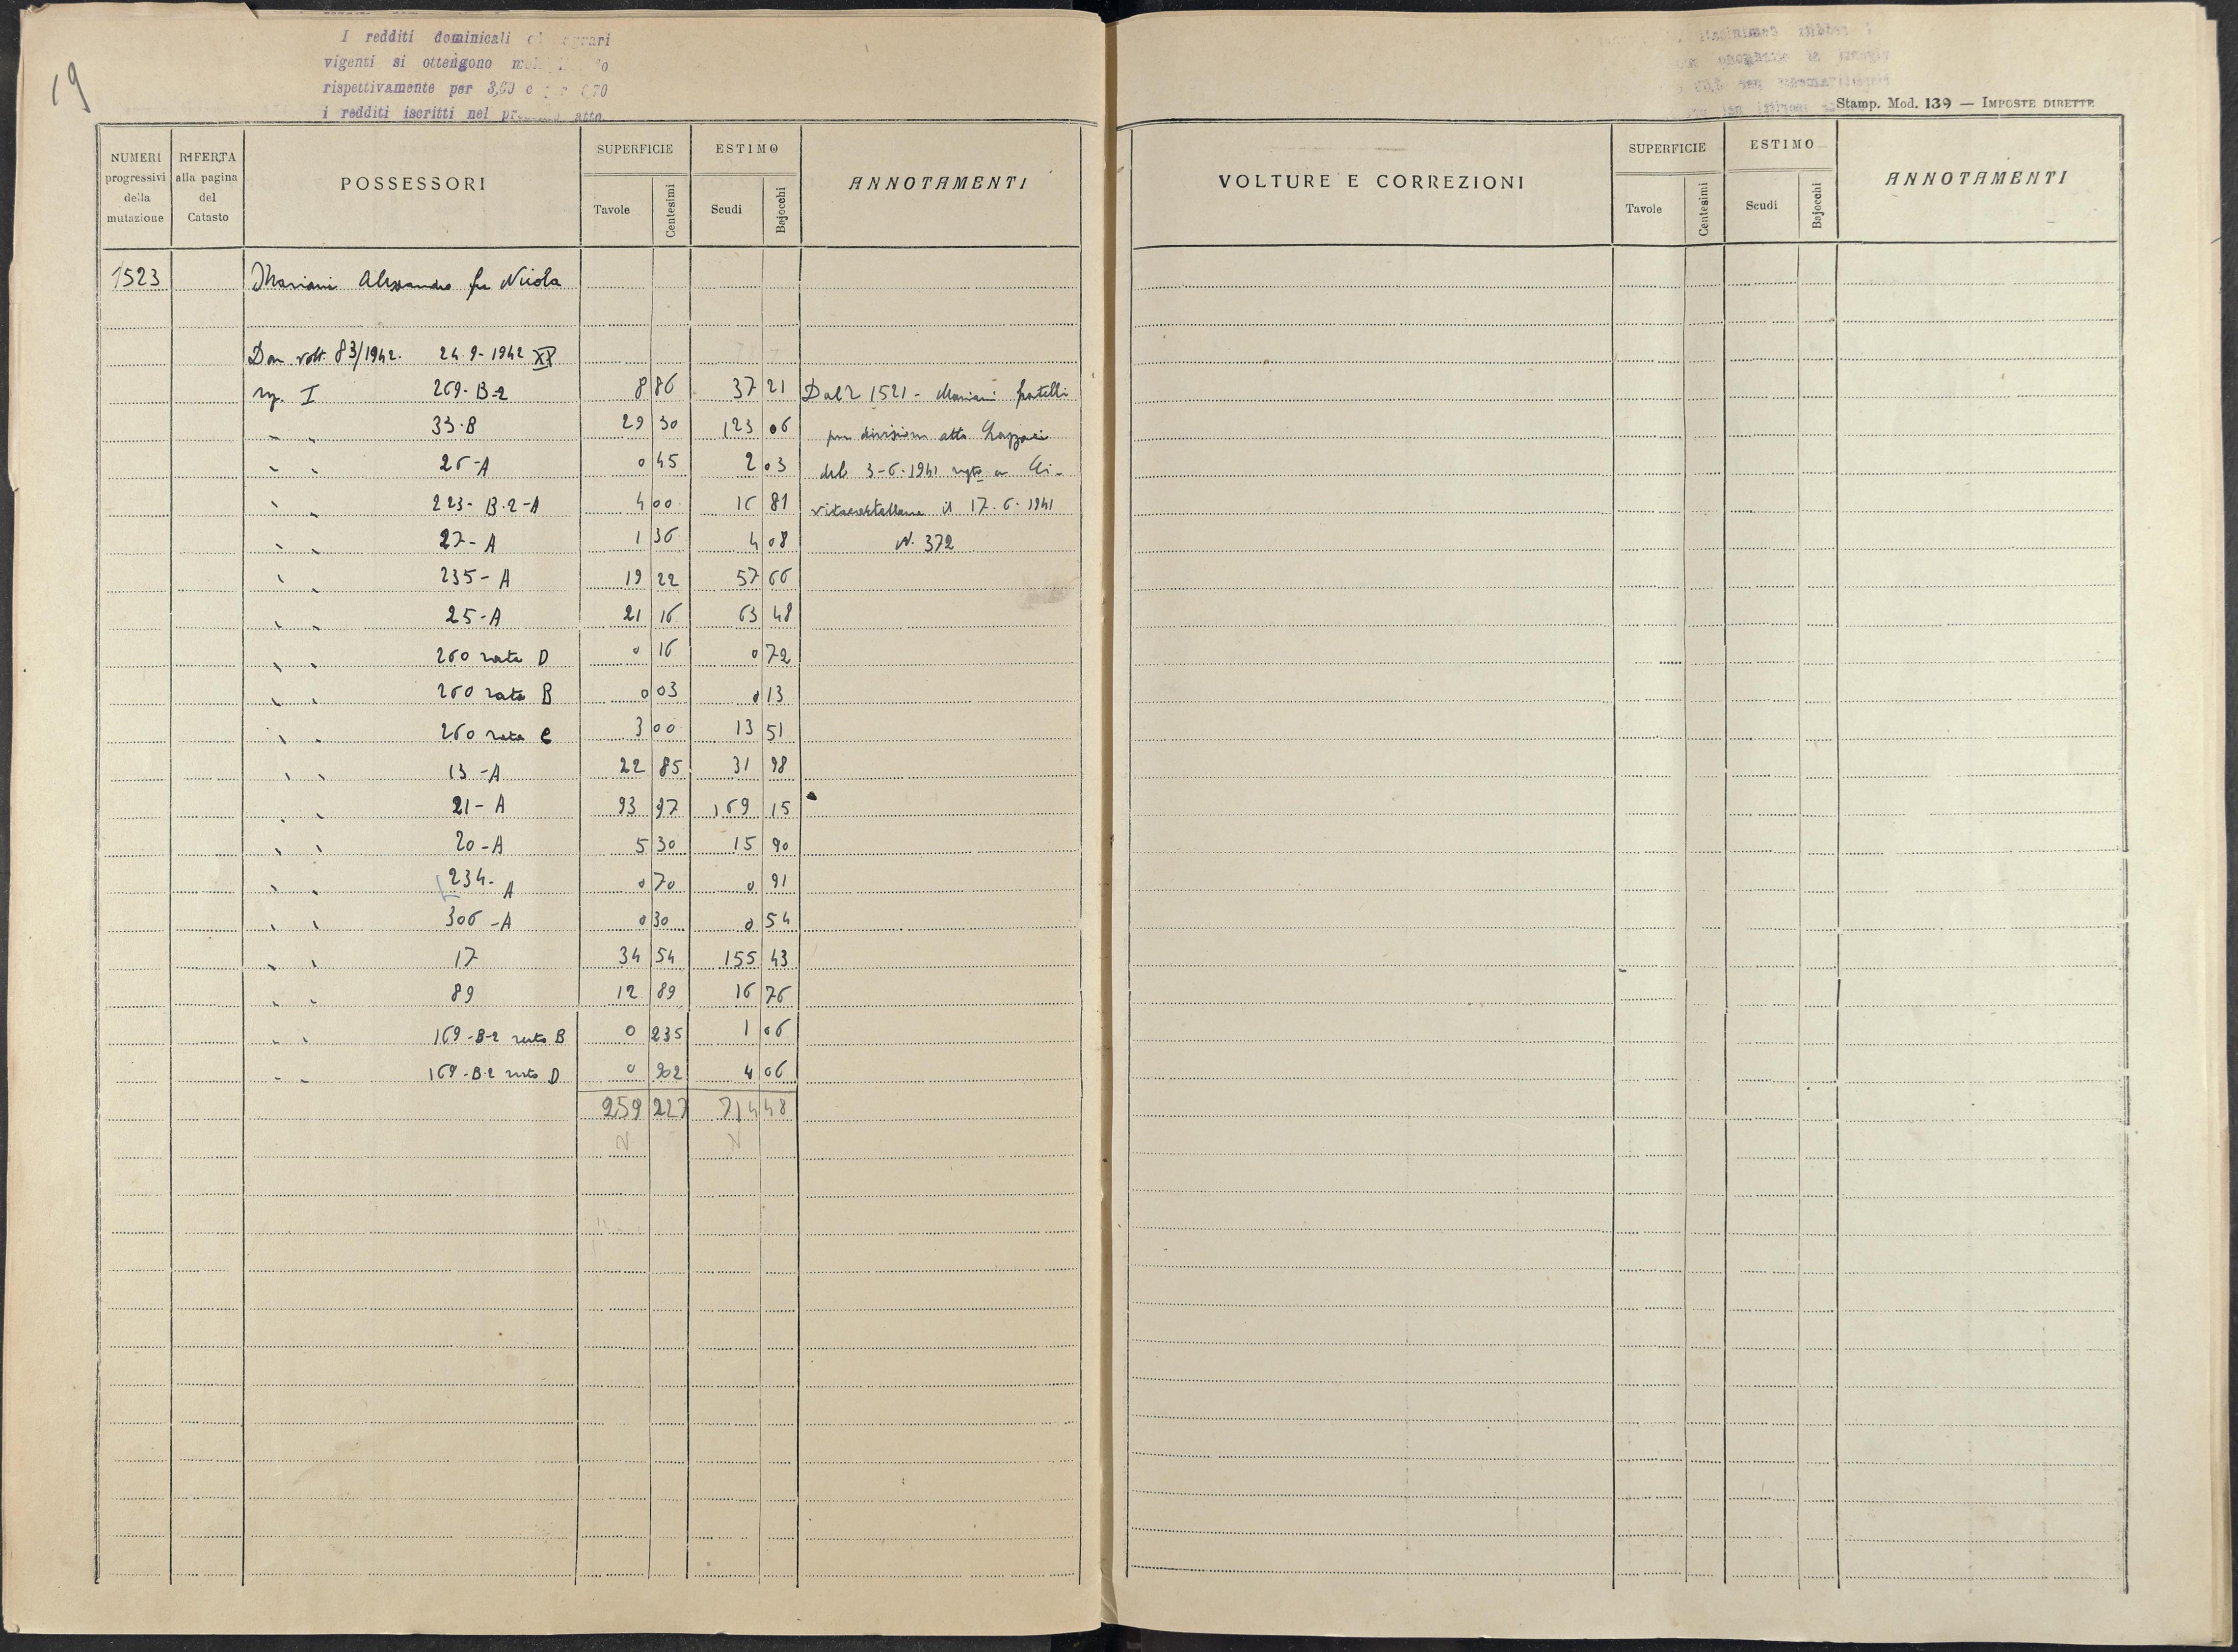 19
I redditi dominicali
vigenti si ottengono
rispettivamente per 3,60 e 0,70
i redditi iscritti nel atto.
Stamp. Mod. 139 — IMPOSTE DIRETTE
NUMERI progressivi della mutazione
RIFERTA alla pagina del Catasto
POSSESSORI
SUPERFICIE Tavole Centesimi
ESTIMO Scudi Bajocchi
ANNOTAMENTI
1523 Mariani Alessandro fu Nicola
Dom. volt. 83/1942. 24-9-1942 XX
I 269-B-2 8 86 37 21 Dal 1521 - Mariani fratelli
" " 33-B 29 30 123 06 per divisione atto
" " 26-A 0 45 2 03 del 3-6-1941 Ci-
" " 223-B-2-A 4 00 16 81 vitacastellana il 17-6-1941
" " 27-A 1 36 4 08 N. 372
" " 235-A 19 22 57 66
" " 25-A 21 16 63 48
" " 260 rata D 0 16 0 72
" " 260 rata B 0 03 0 13
" " 260 rata C 3 00 13 51
" " 13-A 22 85 31 98
" " 21-A 93 97 169 15
" " 20-A 5 30 15 90
" " 234-A 0 70 0 91
" " 306-A 0 30 0 54
" " 17 34 54 155 43
" " 89 12 89 16 76
" " 169-B-2 resto B 0 235 1 06
" " 169-B-2 resto D 0 902 4 06
259 227 714 48
VOLTURE E CORREZIONI
SUPERFICIE Tavole Centesimi
ESTIMO Scudi Bajocchi
ANNOTAMENTI